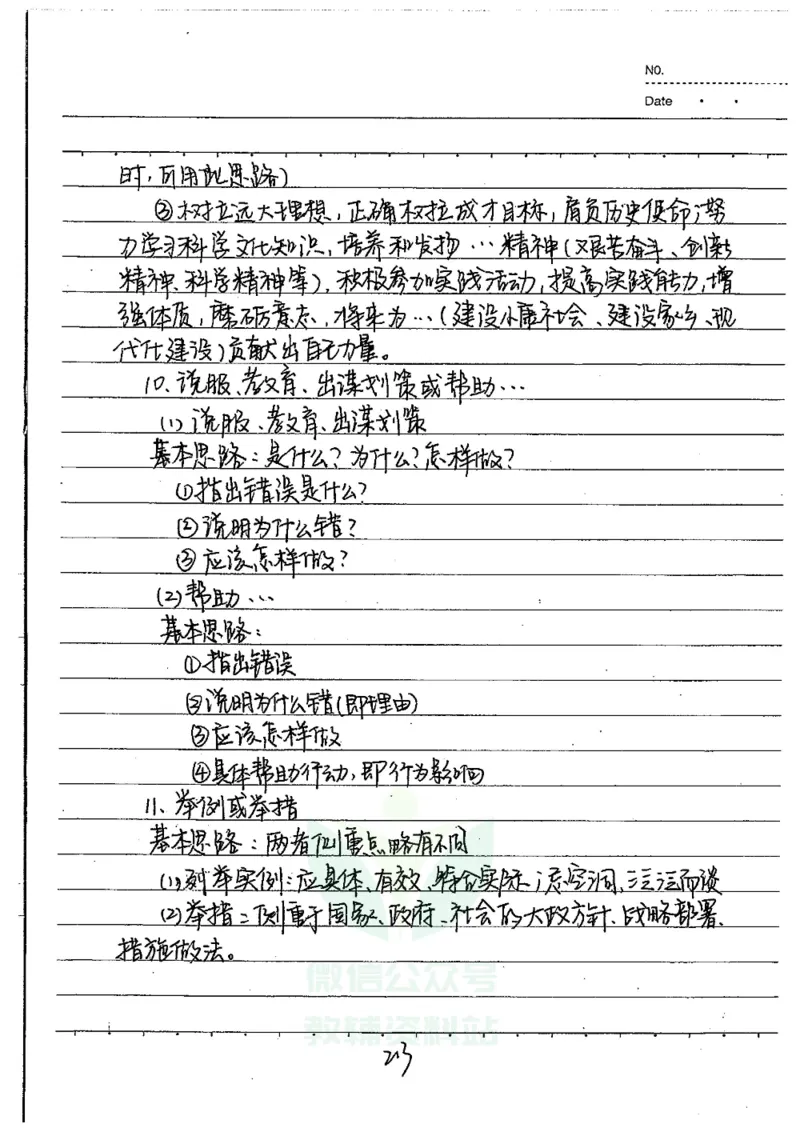 NO.
Date
时，可用此思路）
③树立远大理想，正确树立成才目标，肩负历史使命；努
力学习科学文化知识，培养和发扬…精神（艰苦奋斗、创新
精神、科学精神等），积极参加实践活动，提高实践能力，增
强体质，磨砺意志，将来为…（建设小康社会、建设家乡、现
代化建设）贡献出自己力量。
10、说服、教育、出谋划策或帮助…
(1)说服、教育、出谋划策
基本思路：是什么？为什么？怎样做？
①指出错误是什么？
②说明为什么错？
③应该怎样做？
(2)帮助…
基本思路：
①指出错误
②说明为什么错（即理由）
③应该怎样做
④具体帮助行动，即行为影响
11、举例或举措
基本思路：两者侧重点略有不同
(1)列举实例：应具体、有效、符合实际；忌空洞、泛泛而谈
(2)举措：侧重于国家、政府、社会的大政方针、战略部署、
措施做法。
微信公众号
教辅资料站
23